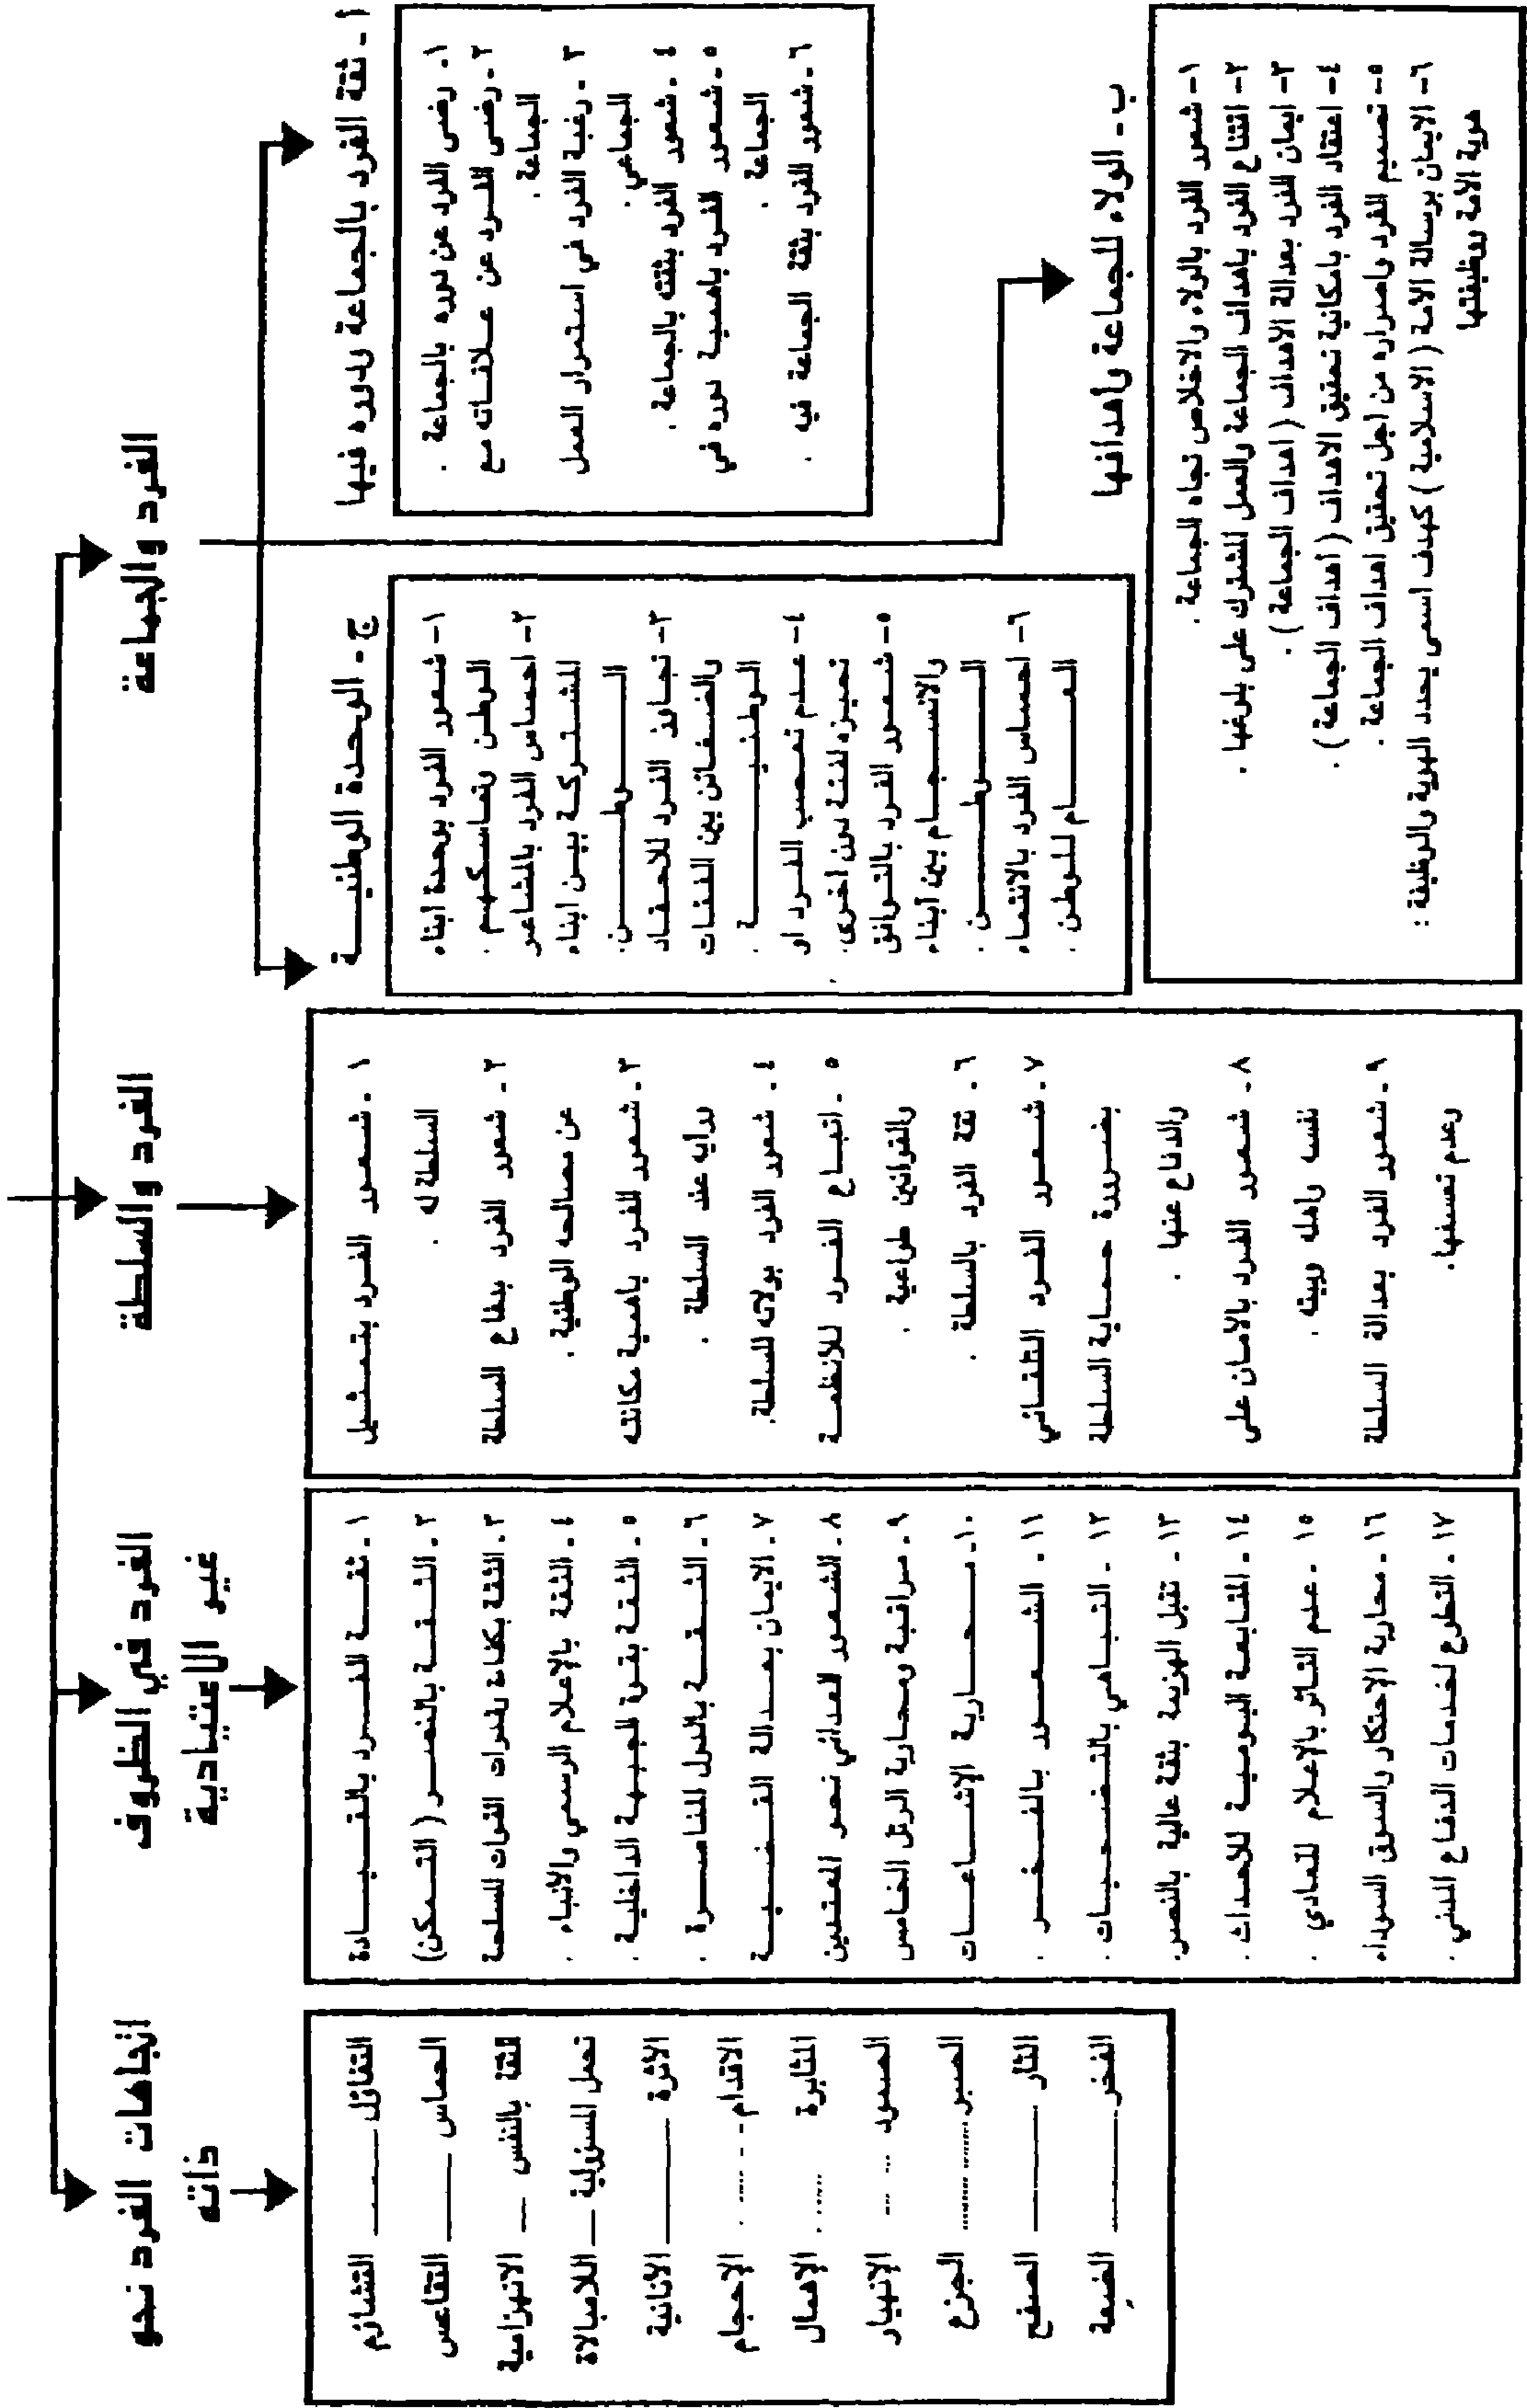 الفرد والجماعة
١ - ثقة الفرد بالجماعة ودوره فيها
١ - رضى الفرد عن دوره بالجماعة .
٢ - رضى الفرد عن علاقاته مع
الجماعة .
٣ - رغبة الفرد في استمرار العمل
الجماعي .
٤ - شعور الفرد بثقته بالجماعة .
٥ - شعور الفرد باهمية دوره في
الجماعة .
٦ - شعور الفرد بثقة الجماعة فيه .
ب - الولاء للجماعة وأهدافها
١- شعور الفرد بالولاء والاخلاص تجاه الجماعة .
٢- اقتناع الفرد باهداف الجماعة والعمل المشترك على بلوغها .
٣- ايمان الفرد بعدالة الاهداف ( اهداف الجماعة ) .
٤- اعتقاد الفرد بامكانية تحقيق الاهداف ( أهداف الجماعة ) .
٥- تصميم الفرد واصراره من اجل تحقيق اهداف الجماعة .
٦- الايمان برسالة الامة ( الاسلامية ) كهدف اسمى يحدد الهوية والوظيفة :
هوية الامة ووظيفتها
ج - الوحدة الوطنية
١- شعور الفرد بوحدة ابناء
الوطن وتماسكهم .
٢- احساس الفرد بالمشاعر
المشتركة بين ابناء
الوطن .
٣- تجاوز الفرد للاحقاد
والضغائن بين الفئات
الوطنية .
٤- عدم تعصب الفرد او
تحيزه لفئة دون اخرى .
٥- شعور الفرد بالتوافق
والانسجام بين أبناء
الوطن .
٦- احساس الفرد بالانتماء
العام للوطن .
الفرد والسلطة
١ - شعور الفرد بتمثيل
السلطة له .
٢ - شعور الفرد بدفاع السلطة
عن مصالحه الوطنية .
٣ - شعور الفرد باهمية مكانته
ورايه عند السلطة .
٤ - شعور الفرد بولائه للسلطة .
٥ - اتباع الفرد للأنظمة
والقوانين طواعية .
٦ - ثقة الفرد بالسلطة .
٧ - شعور الفرد التلقائي
بضرورة حماية السلطة
والدفاع عنها .
٨ - شعور الفرد بالامان على
نفسه واهله وبيته .
٩ - شعور الفرد بعدالة السلطة
وعدم تعسفها .
الفرد في الظروف
غير الاعتيادية
١ - ثقة الفرد بالقيادة
٢ - الثقة بالنصر ( التمكن )
٣ - الثقة بكفاءة وقدرات القوات المسلحة
٤ - الثقة بالإعلام الرسمي والانباء .
٥ - الثقة بقوة الجبهة الداخلية .
٦ - الثقة بالدول المناصرة .
٧ - الايمان بعدالة القضية
٨ - الشعور العدائي نحو المعتدين
٩ - مراقبة ومحاربة الرتل الخامس
١٠ - محاربة الإشاعات
١١ - الشعور بالفخر .
١٢ - التباهي بالتضحيات .
١٣ - تقبل الهزيمة بثقة عالية بالنصر .
١٤ - المتابعة اليومية للأحداث .
١٥ - عدم التأثر بالإعلام المعادي .
١٦ - محاربة الإحتكار والسوق السوداء
١٧ - التطوع لخدمات الدفاع المدني .
اتجاهات الفرد نحو
ذاته
التفاؤل ــــ التشاؤم
الحماس ــــ التقاعس
الثقة بالنفس ــــ الانهزامية
تحمل المسؤولية ــــ اللامبالاة
الأثرة ــــ الأنانية
الاقدام - - ---- . الإحجام
المثابرة ..... الإهمال
الصمود ... --- الإنهيار
الصبر .......... الجزع
الثأر ــــ الصفح
الفخر ــــ الضِعة